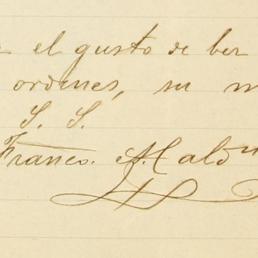 el gusto de ber
ordenes, su
S. S.
Franco. A. Cald